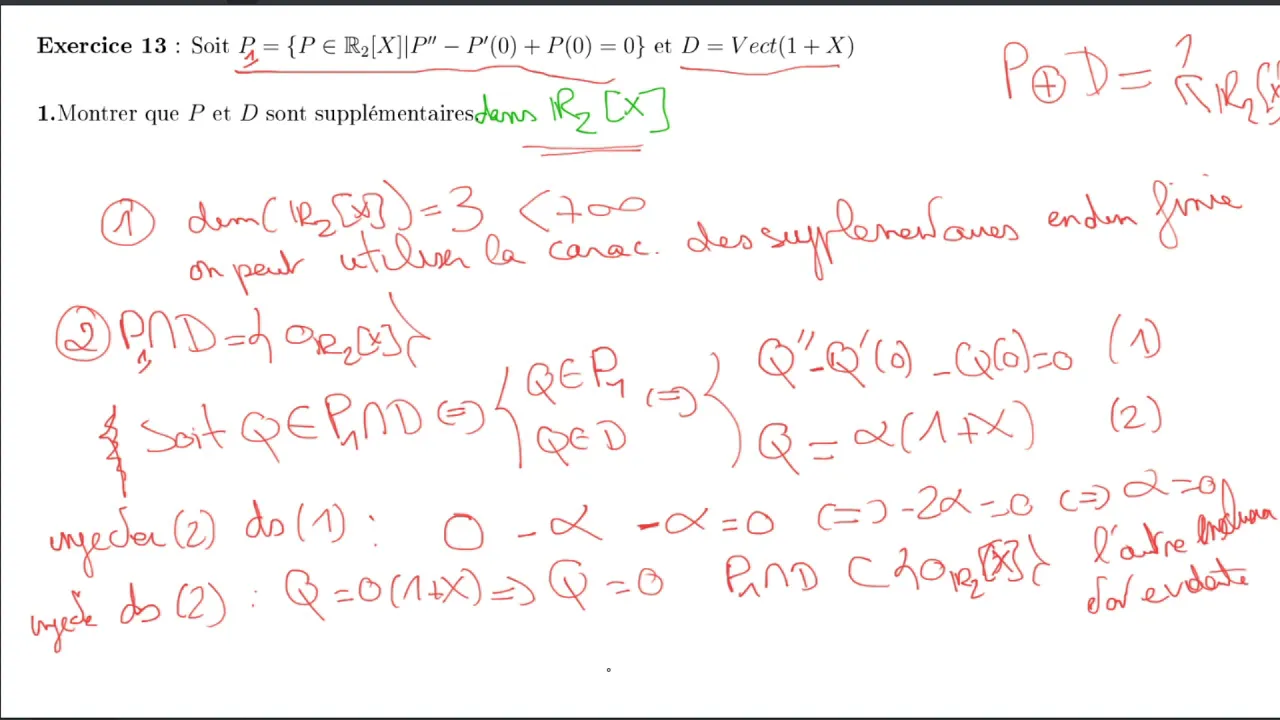 Exercice 13 : Soit P₁ = {P ∈ ℝ₂[X]|P″ − P′(0) + P(0) = 0} et D = Vect(1 + X)
P ⊕ D = ? ℝ₂[X]
1.Montrer que P et D sont supplémentaires dans ℝ₂[X]
① dim(ℝ₂[X]) = 3 < +∞
on peut utiliser la carac. des supplémentaires en dim finie
② P₁∩D = {0ℝ₂[X]}
Soit Q ∈ P₁∩D ⟺ { Q∈P₁ Q∈D ⟺ { Q″ − Q′(0) − Q(0) = 0 (1)
Q = α(1+X) (2)
injecter (2) ds (1) : 0 − α − α = 0 ⟺ −2α = 0 ⟺ α = 0
injecte ds (2) : Q = 0(1+X) ⟹ Q = 0 P₁∩D ⊂ {0ℝ₂[X]} l'autre inclusion
évidente